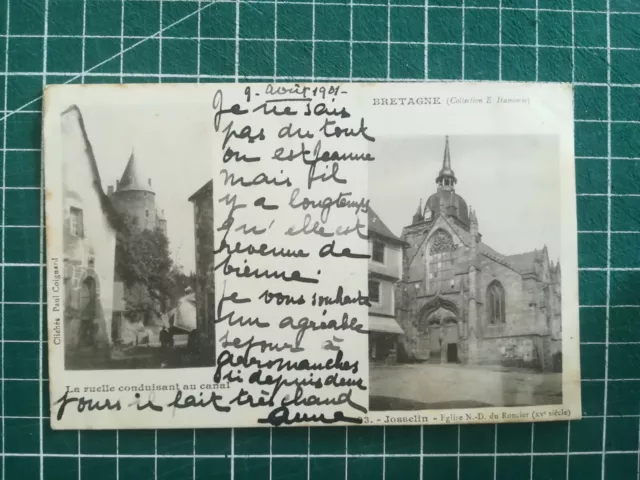 BRETAGNE (Collection E. Hamonic)
9 Août 1901-
Je ne sais
pas du tout
ou est Jeanne
mais il
y a longtemps
qu'elle est
revenue de
vienne.
Je vous souhaite
un agréable
sejour à
Arromanches
ici depuis deux
jours il fait très chaud
Anne
Clichés Paul Coignard
La ruelle conduisant au canal
3. - Josselin - Eglise N.-D. du Roncier (XVe siècle)